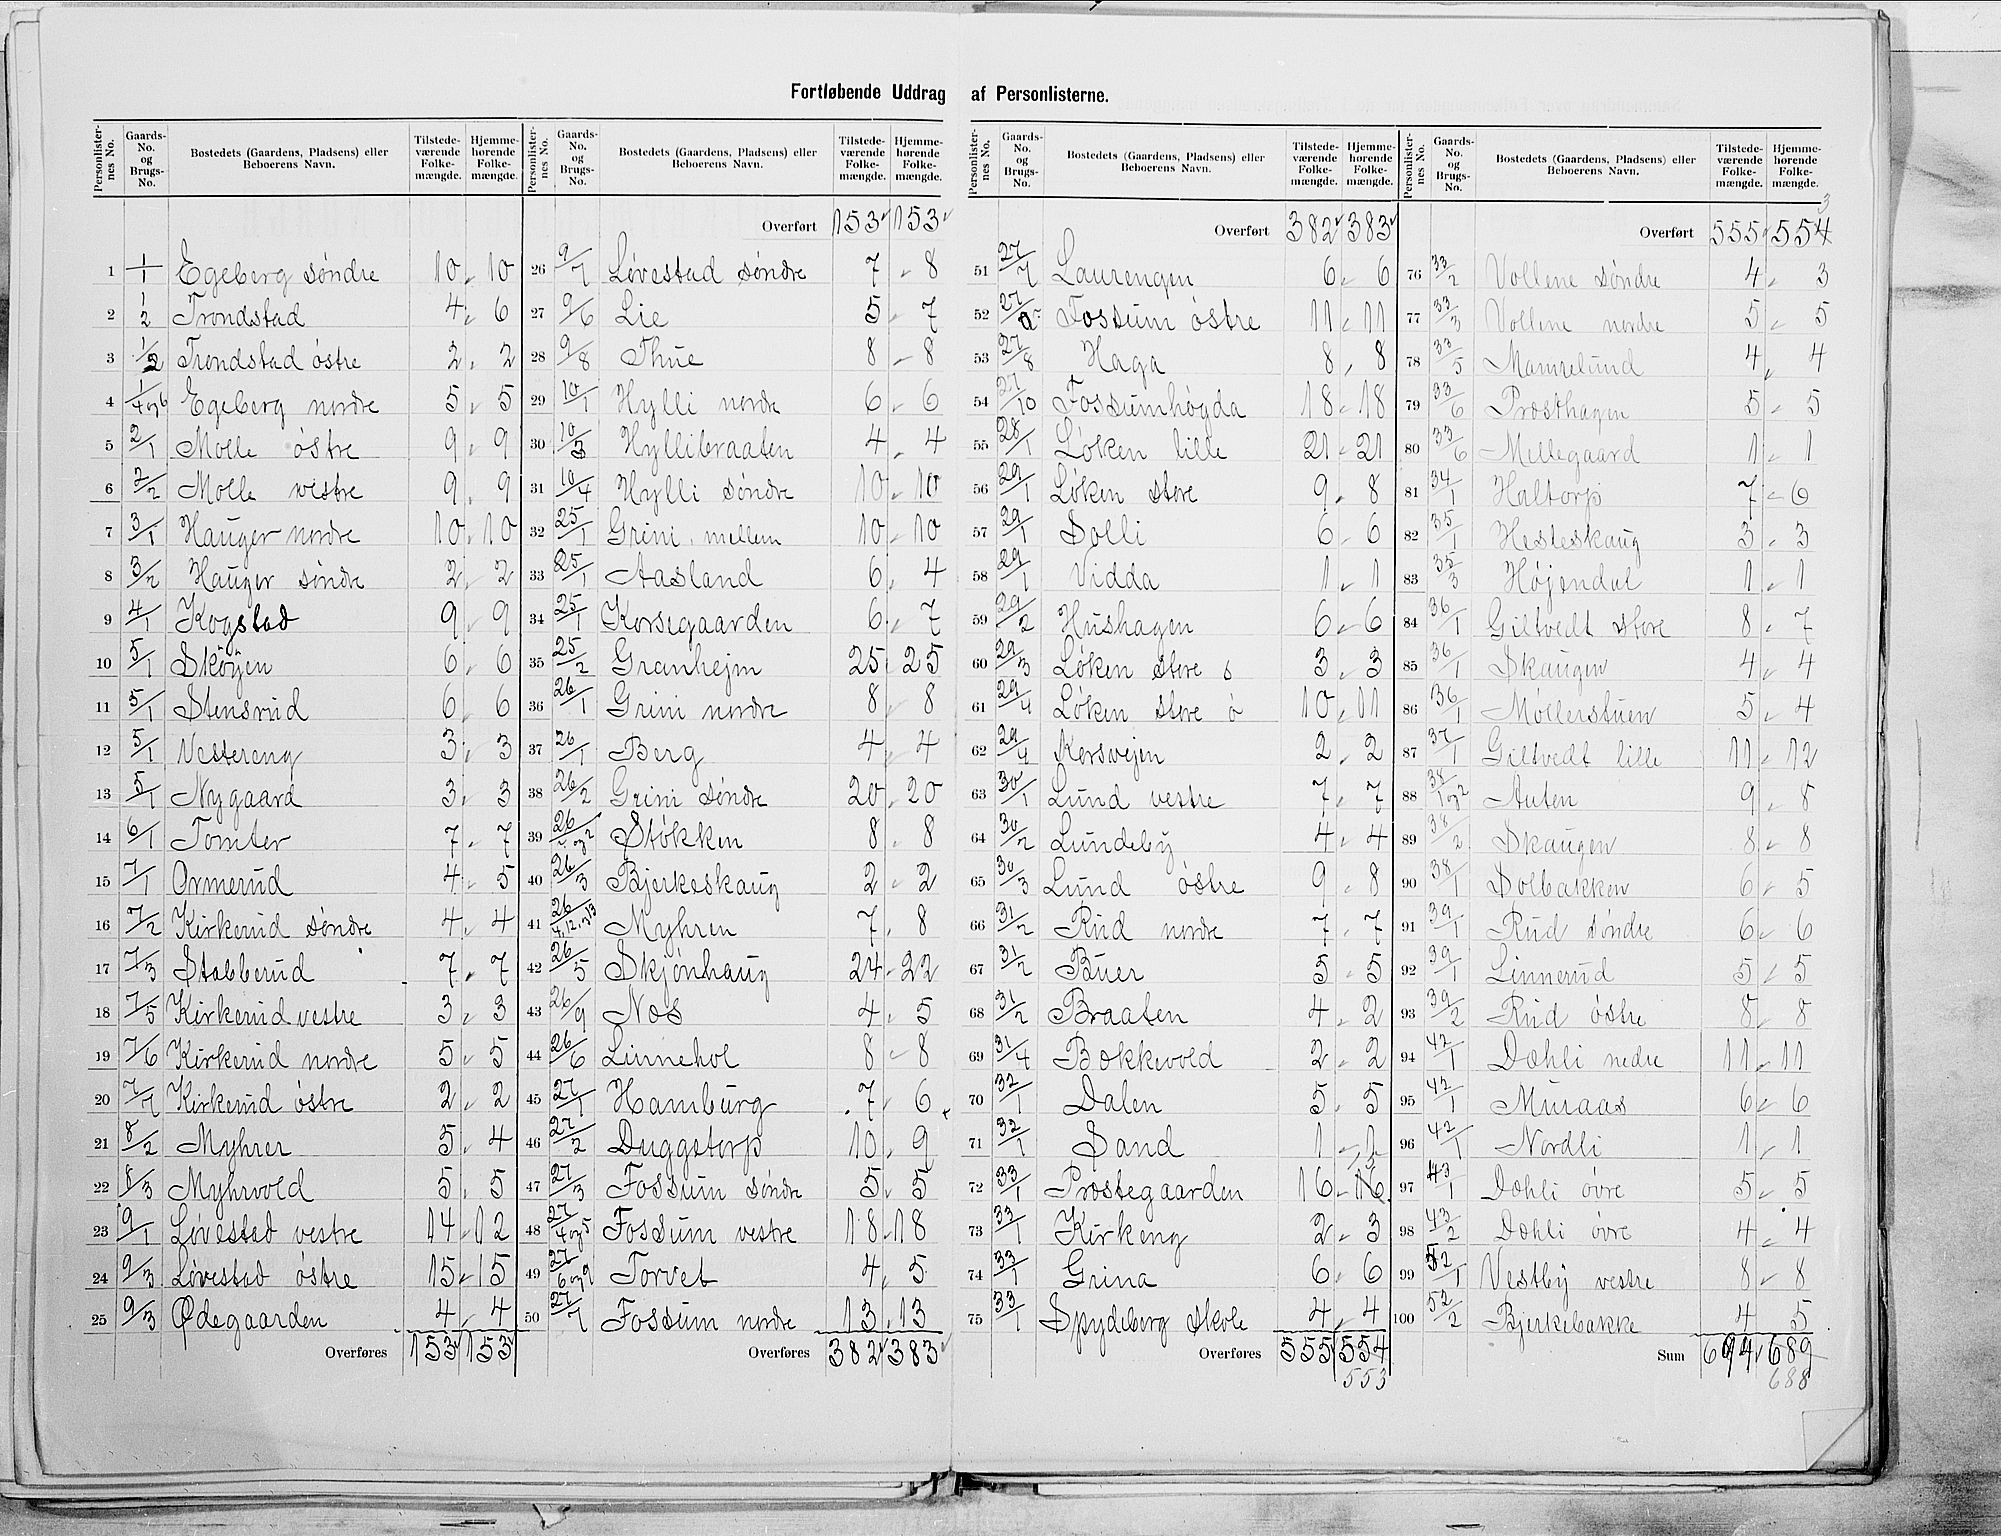 Fortløbende Uddrag af Personlisterne.
Personlister-nes No. Gaards-No. og Brugs-No. Bostedets (Gaardens, Pladsens) eller Beboerens Navn. Tilstede-værende Folke-mængde. Hjemme-hørende Folke-mængde.
1 1/1 Egeberg søndre 10 10
2 1/2 Trondstad 4 6
3 1/2 Trondstad østre 2 2
4 1/4og6 Egeberg nordre 5 5
5 2/1 Molle østre 9 9
6 2/2 Molle vestre 9 9
7 3/1 Hauger nordre 10 10
8 3/2 Hauger søndre 2 2
9 4/1 Kogstad 9 9
10 5/1 Skøyen 6 6
11 5/1 Stensrud 6 6
12 5/1 Vestereng 3 3
13 5/1 Nygaard 3 3
14 6/1 Tomter 7 7
15 7/1 Ormerud 4 5
16 7/2 Kirkerud søndre 4 4
17 7/3 Stabberud 7 7
18 7/5 Kirkerud vestre 3 3
19 7/6 Kirkerud nordre 5 5
20 7/7 Kirkerud østre 2 2
21 8/2 Myhrer 5 4
22 8/3 Myhrvold 5 5
23 9/1 Løvestad vestre 14 12
24 9/3 Løvestad østre 15 15
25 9/3 Ødegaarden 4 4
Overføres 153 153
Personlister-nes No. Gaards-No. og Brugs-No. Bostedets (Gaardens, Pladsens) eller Beboerens Navn. Tilstede-værende Folke-mængde. Hjemme-hørende Folke-mængde.
Overført 153 153
26 9/7 Løvestad søndre 7 8
27 9/6 Lie 5 7
28 9/8 Thue 8 8
29 10/1 Hylli nordre 6 6
30 10/3 Hyllibraaten 4 4
31 10/4 Hylli søndre 10 10
32 25/1 Grini mellem 10 10
33 25/1 Aasland 6 4
34 25/1 Korsegaarden 6 7
35 25/2 Granhejm 25 25
36 26/1 Grini nordre 8 8
37 26/1 Berg 4 4
38 26/2 Grini søndre 20 20
39 26/1og2 Støkken 8 8
40 26/3 Bjerkeskaug 2 2
41 26/4,12,og13 Myhren 7 8
42 26/5 Skjønhaug 24 22
43 26/9 Næs 4 5
44 26/6 Linnehol 8 8
45 27/1 Hamburg 7 6
46 27/2 Duggstorp 10 9
47 27/3 Fossum søndre 5 5
48 27/4og5 Fossum vestre 18 18
49 27/6og9 Torvet 4 5
50 27/7 Fossum nordre 13 13
Overføres 382 383
Personlister-nes No. Gaards-No. og Brugs-No. Bostedets (Gaardens, Pladsens) eller Beboerens Navn. Tilstede-værende Folke-mængde. Hjemme-hørende Folke-mængde.
Overført 382 383
51 27/7 Laurengen 6 6
52 27/ Fossum østre 11 11
53 27/8 Haga 8 8
54 27/10 Fossumhøgda 18 18
55 28/1 Løken lille 21 21
56 29/1 Løken store 9 8
57 29/1 Solli 6 6
58 29/1 Vidda 1 1
59 29/2 Hushagen 6 6
60 29/3 Løken store s 3 3
61 29/4 Løken store ø 10 11
62 29/4 Korsvejen 2 2
63 30/1 Lund vestre 7 7
64 30/2 Lundeby 4 4
65 30/3 Lund østre 9 8
66 31/2 Rud nordre 7 7
67 31/2 Buer 5 5
68 31/2 Braaten 4 2
69 31/4 Bækkevold 2 2
70 32/1 Dalen 5 5
71 32/1 Sand 1 1
72 33/1 Præstegaarden 16 16 15
73 33/1 Kirkeng 2 3
74 33/1 Grina 6 6
75 33/1 Spydeberg Skole 4 4
Overføres 555 554
553
Personlister-nes No. Gaards-No. og Brugs-No. Bostedets (Gaardens, Pladsens) eller Beboerens Navn. Tilstede-værende Folke-mængde. Hjemme-hørende Folke-mængde.
3
Overført 555 554
76 33/2 Vollene søndre 4 3
77 33/3 Vollene nordre 5 5
78 33/5 Mamrelund 4 4
79 33/6 Præsthagen 5 5
80 33/6 Mellegaard 1 1
81 34/1 Haltorp 7 6
82 35/1 Hesteskaug 3 3
83 35/3 Højendal 1 1
84 36/1 Giltvedt store 8 7
85 36/1 Skaugen 4 4
86 36/1 Møllerstuen 5 4
87 37/1 Giltvedt lille 11 12
88 38/1og2 Auten 9 8
89 38/2 Skaugen 8 8
90 38/1 Solbakken 6 5
91 39/1 Rud søndre 6 6
92 39/1 Linnerud 5 5
93 39/2 Rud østre 8 8
94 42/1 Dæhli nedre 11 11
95 42/1 Muraas 6 6
96 42/1 Nordli 1 1
97 43/1 Dæhli øvre 5 5
98 43/2 Dæhli øvre 4 4
99 52/1 Vestby vestre 8 8
100 52/2 Bjerkebakke 4 5
Sum 694 689
688